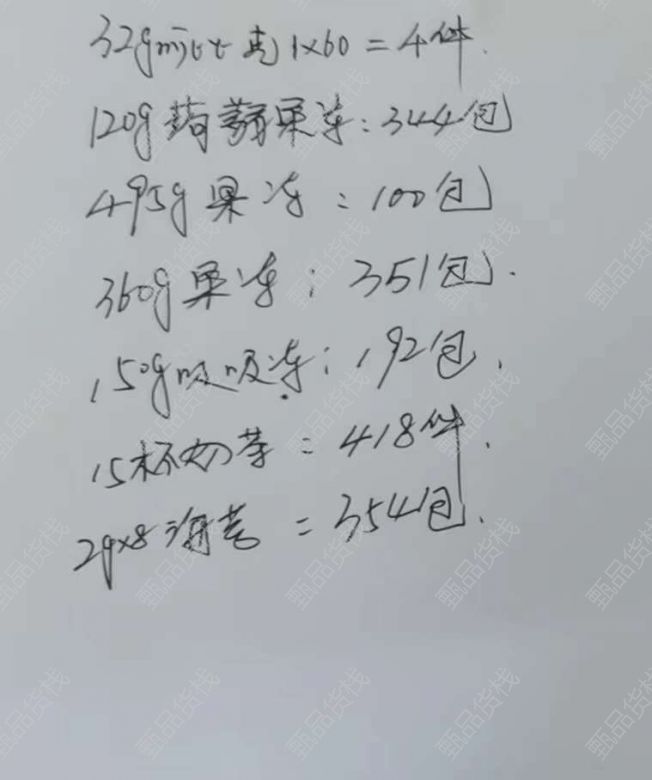 32g 1×60=4件.
120g蒟蒻果冻:344包
495g果冻:100包
360g果冻:351包.
150g吸吸冻:192包.
15杯奶茶=418件.
2g×8海苔=354包.
甄品货栈